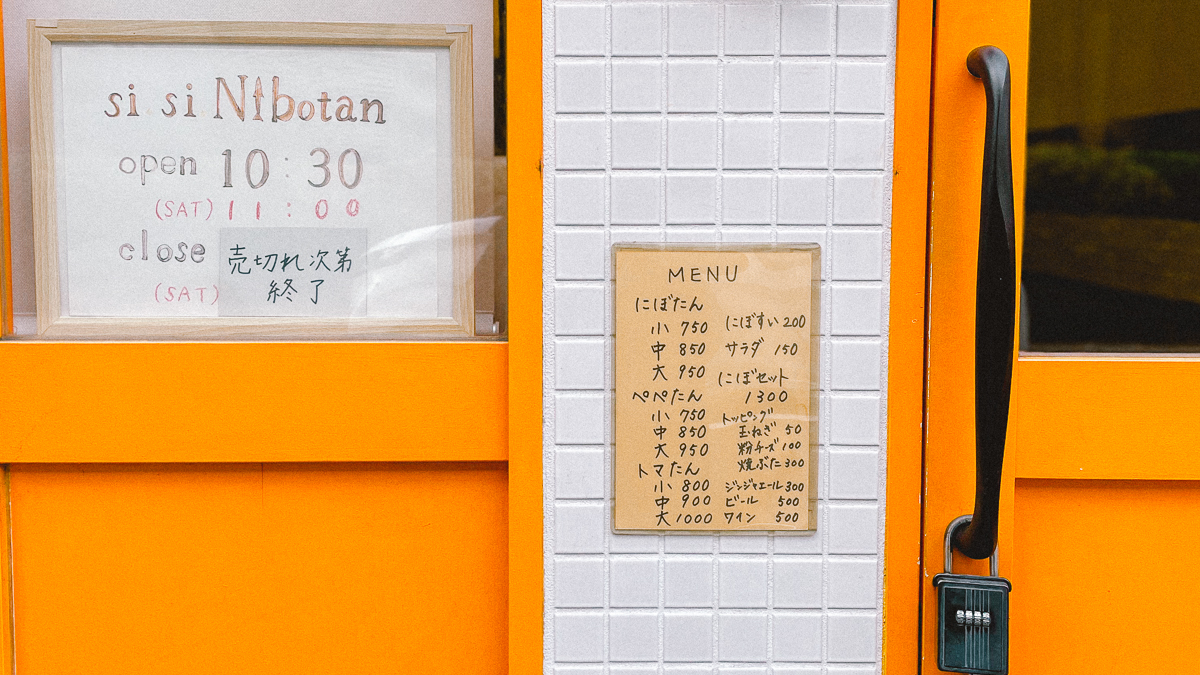 si si Nibotan
open 10:30
(SAT) 11:00
close 売切れ次第
終了
(SAT)
MENU
にぼたん
小 750
中 850
大 950
ぺぺたん
小 750
中 850
大 950
トマたん
小 800
中 900
大 1000
にぼすい 200
サラダ 150
にぼセット
1300
トッピング
玉ねぎ 50
粉チーズ 100
焼ぶた 300
ジンジャエール 300
ビール 500
ワイン 500